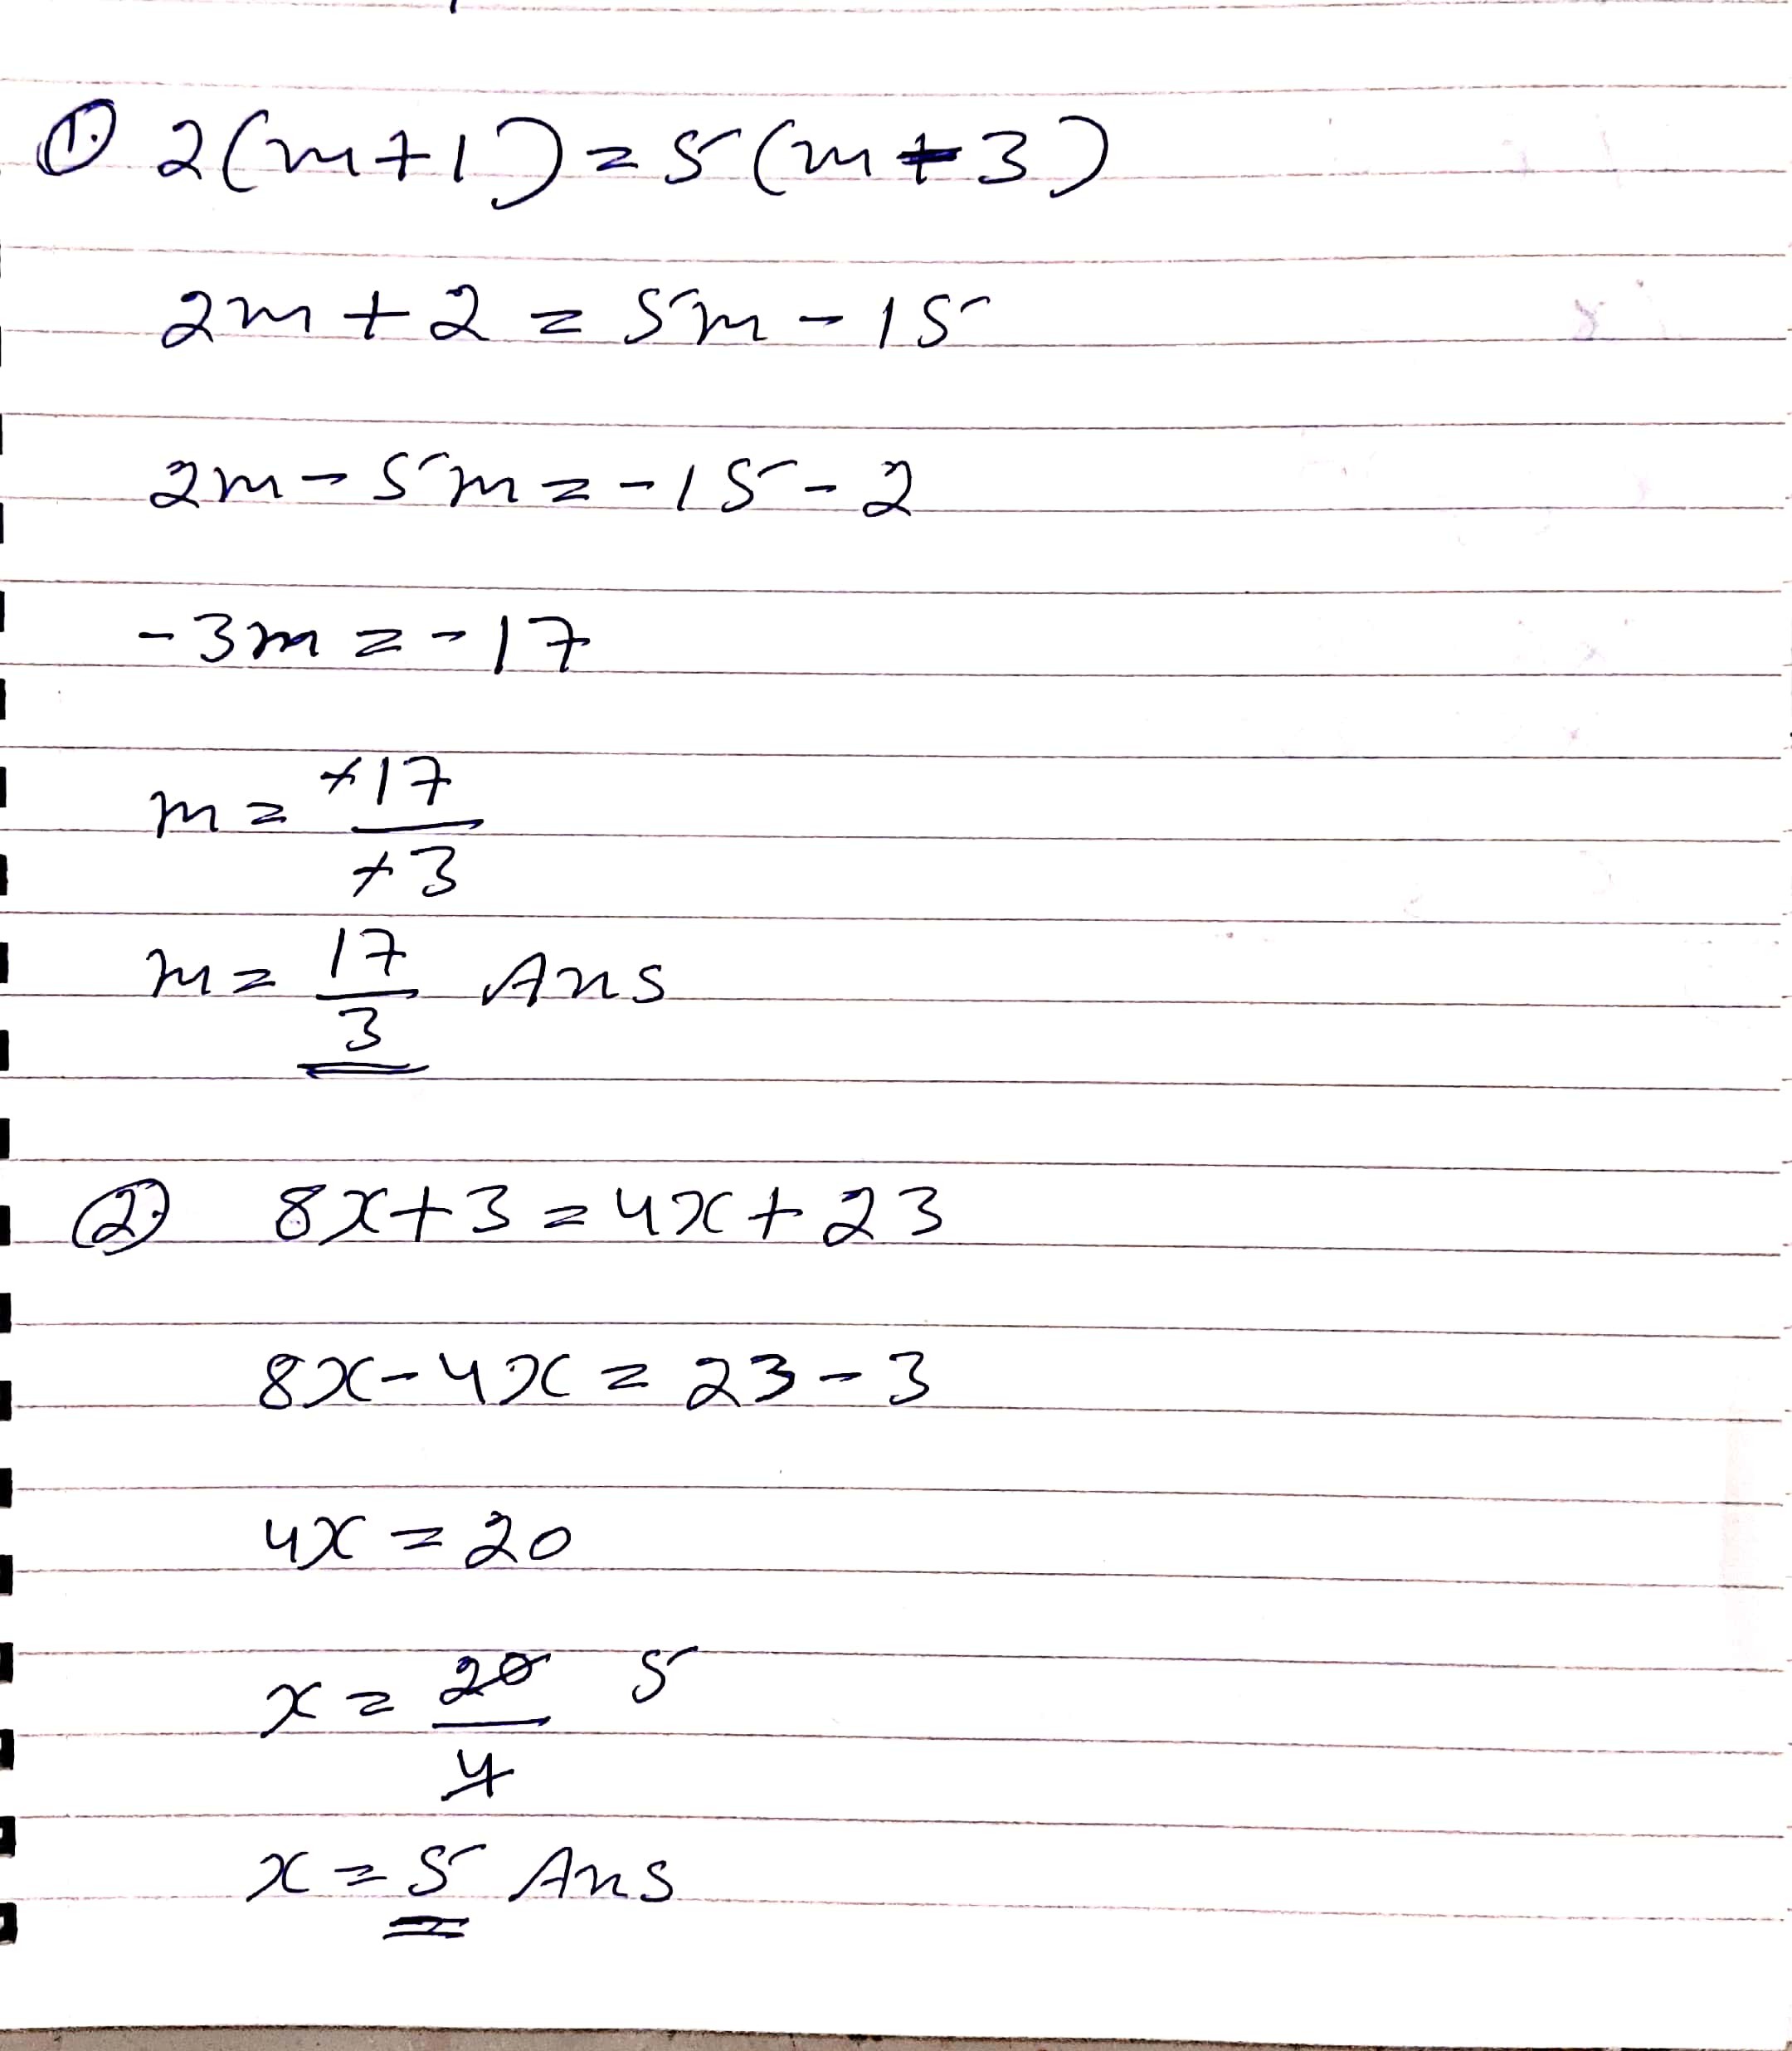 ① 2(m+1) = 5(m+3)
2m + 2 = 5m - 15
2m - 5m = -15 - 2
-3m = -17
m = +17/+3
m = 17/3 Ans
② 8x + 3 = 4x + 23
8x - 4x = 23 - 3
4x = 20
x = 20/4 5
x = 5 Ans